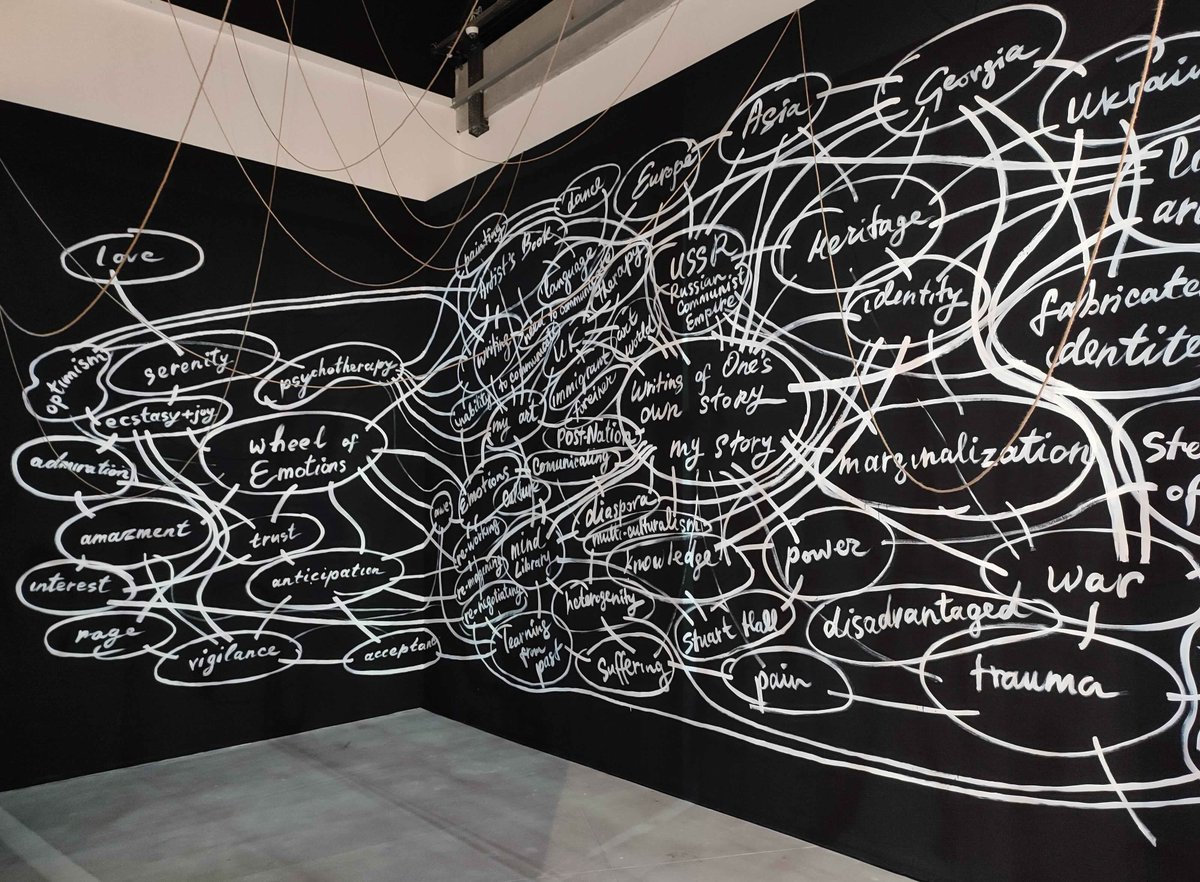 love
optimism
serenity
psychotherapy
ecstasy+joy
wheel of
Emotions
admiration
amazment
trust
interest
anticipation
rage
vigilance
acceptance
painting
dance
Europe
Asia
Georgia
Artist's Book
language
therapy
USSR
Russian
Communist
Empire
Heritage
identity
writing
to communicate
UK
art
world
immigrant
inability
my art
Post-Nation
Comunicating
Writing of One's
own story
my story
marginalization
fabricate
dentite
Emotions
culture
awe
re-working
re-imagining
re-negotiating
mind
Library
diaspora
multi-culturalism
knowledge
power
war
heterogenity
Stuart Hall
disadvantaged
learning
from
past
Suffering
pain
trauma
Ukrain
Ste
of